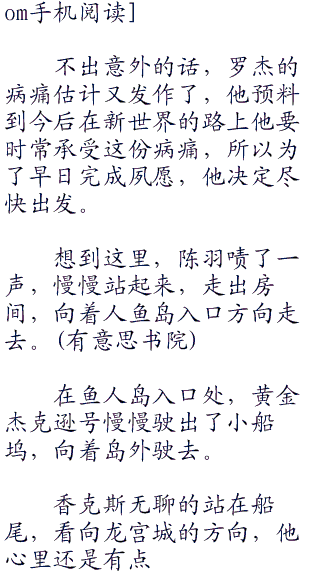 om手机阅读]
不出意外的话，罗杰的
病痛估计又发作了，他预料
到今后在新世界的路上他要
时常承受这份病痛，所以为
了早日完成夙愿，他决定尽
快出发。
想到这里，陈羽啧了一
声，慢慢站起来，走出房
间，向着人鱼岛入口方向走
去。(有意思书院)
在鱼人岛入口处，黄金
杰克逊号慢慢驶出了小船
坞，向着岛外驶去。
香克斯无聊的站在船
尾，看向龙宫城的方向，他
心里还是有点